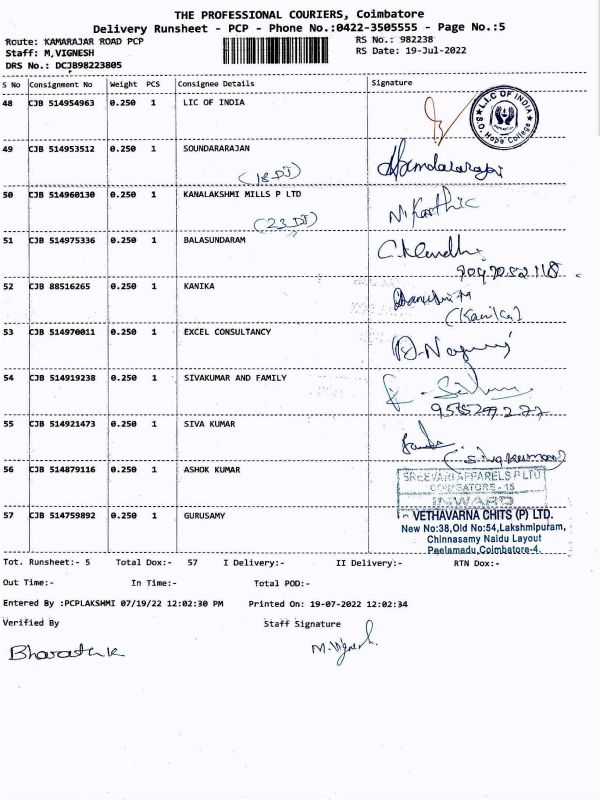 THE PROFESSIONAL COURIERS, Coimbatore
Delivery Runsheet - PCP - Phone No.:0422-3505555 - Page No.:5
Route: KAMARAJAR ROAD PCP
RS No.: 982238
Staff: M,VIGNESH
RS Date: 19-Jul-2022
DRS No.: DCJB98223805
S No Consignment No Weight PCS Consignee Details Signature
48 CJB 514954963 0.250 1 LIC OF INDIA
L.I.C OF INDIA
49 CJB 514953512 0.250 1 SOUNDARARAJAN
(18 DJ)
50 CJB 514960130 0.250 1 KANALAKSHMI MILLS P LTD
N. Karthic
(23 DJ)
51 CJB 514975336 0.250 1 BALASUNDARAM
52 CJB 88516265 0.250 1 KANIKA
(Kanika)
53 CJB 514970011 0.250 1 EXCEL CONSULTANCY
54 CJB 514919238 0.250 1 SIVAKUMAR AND FAMILY
55 CJB 514921473 0.250 1 SIVA KUMAR
(Sivakumar)
56 CJB 514879116 0.250 1 ASHOK KUMAR
SREEVARI APPARELS P LTD
COIMBATORE - 15
INWARD
57 CJB 514759892 0.250 1 GURUSAMY
VETHAVARNA CHITS (P) LTD.
New No:38,Old No:54,Lakshmipuram,
Chinnasamy Naidu Layout
Peelamadu,Coimbatore-4.
Tot. Runsheet:- 5 Total Dox:- 57 I Delivery:- II Delivery:- RTN Dox:-
Out Time:- In Time:- Total POD:-
Entered By :PCPLAKSHMI 07/19/22 12:02:30 PM Printed On: 19-07-2022 12:02:34
Verified By Staff Signature
Bharath K
M. Vignesh